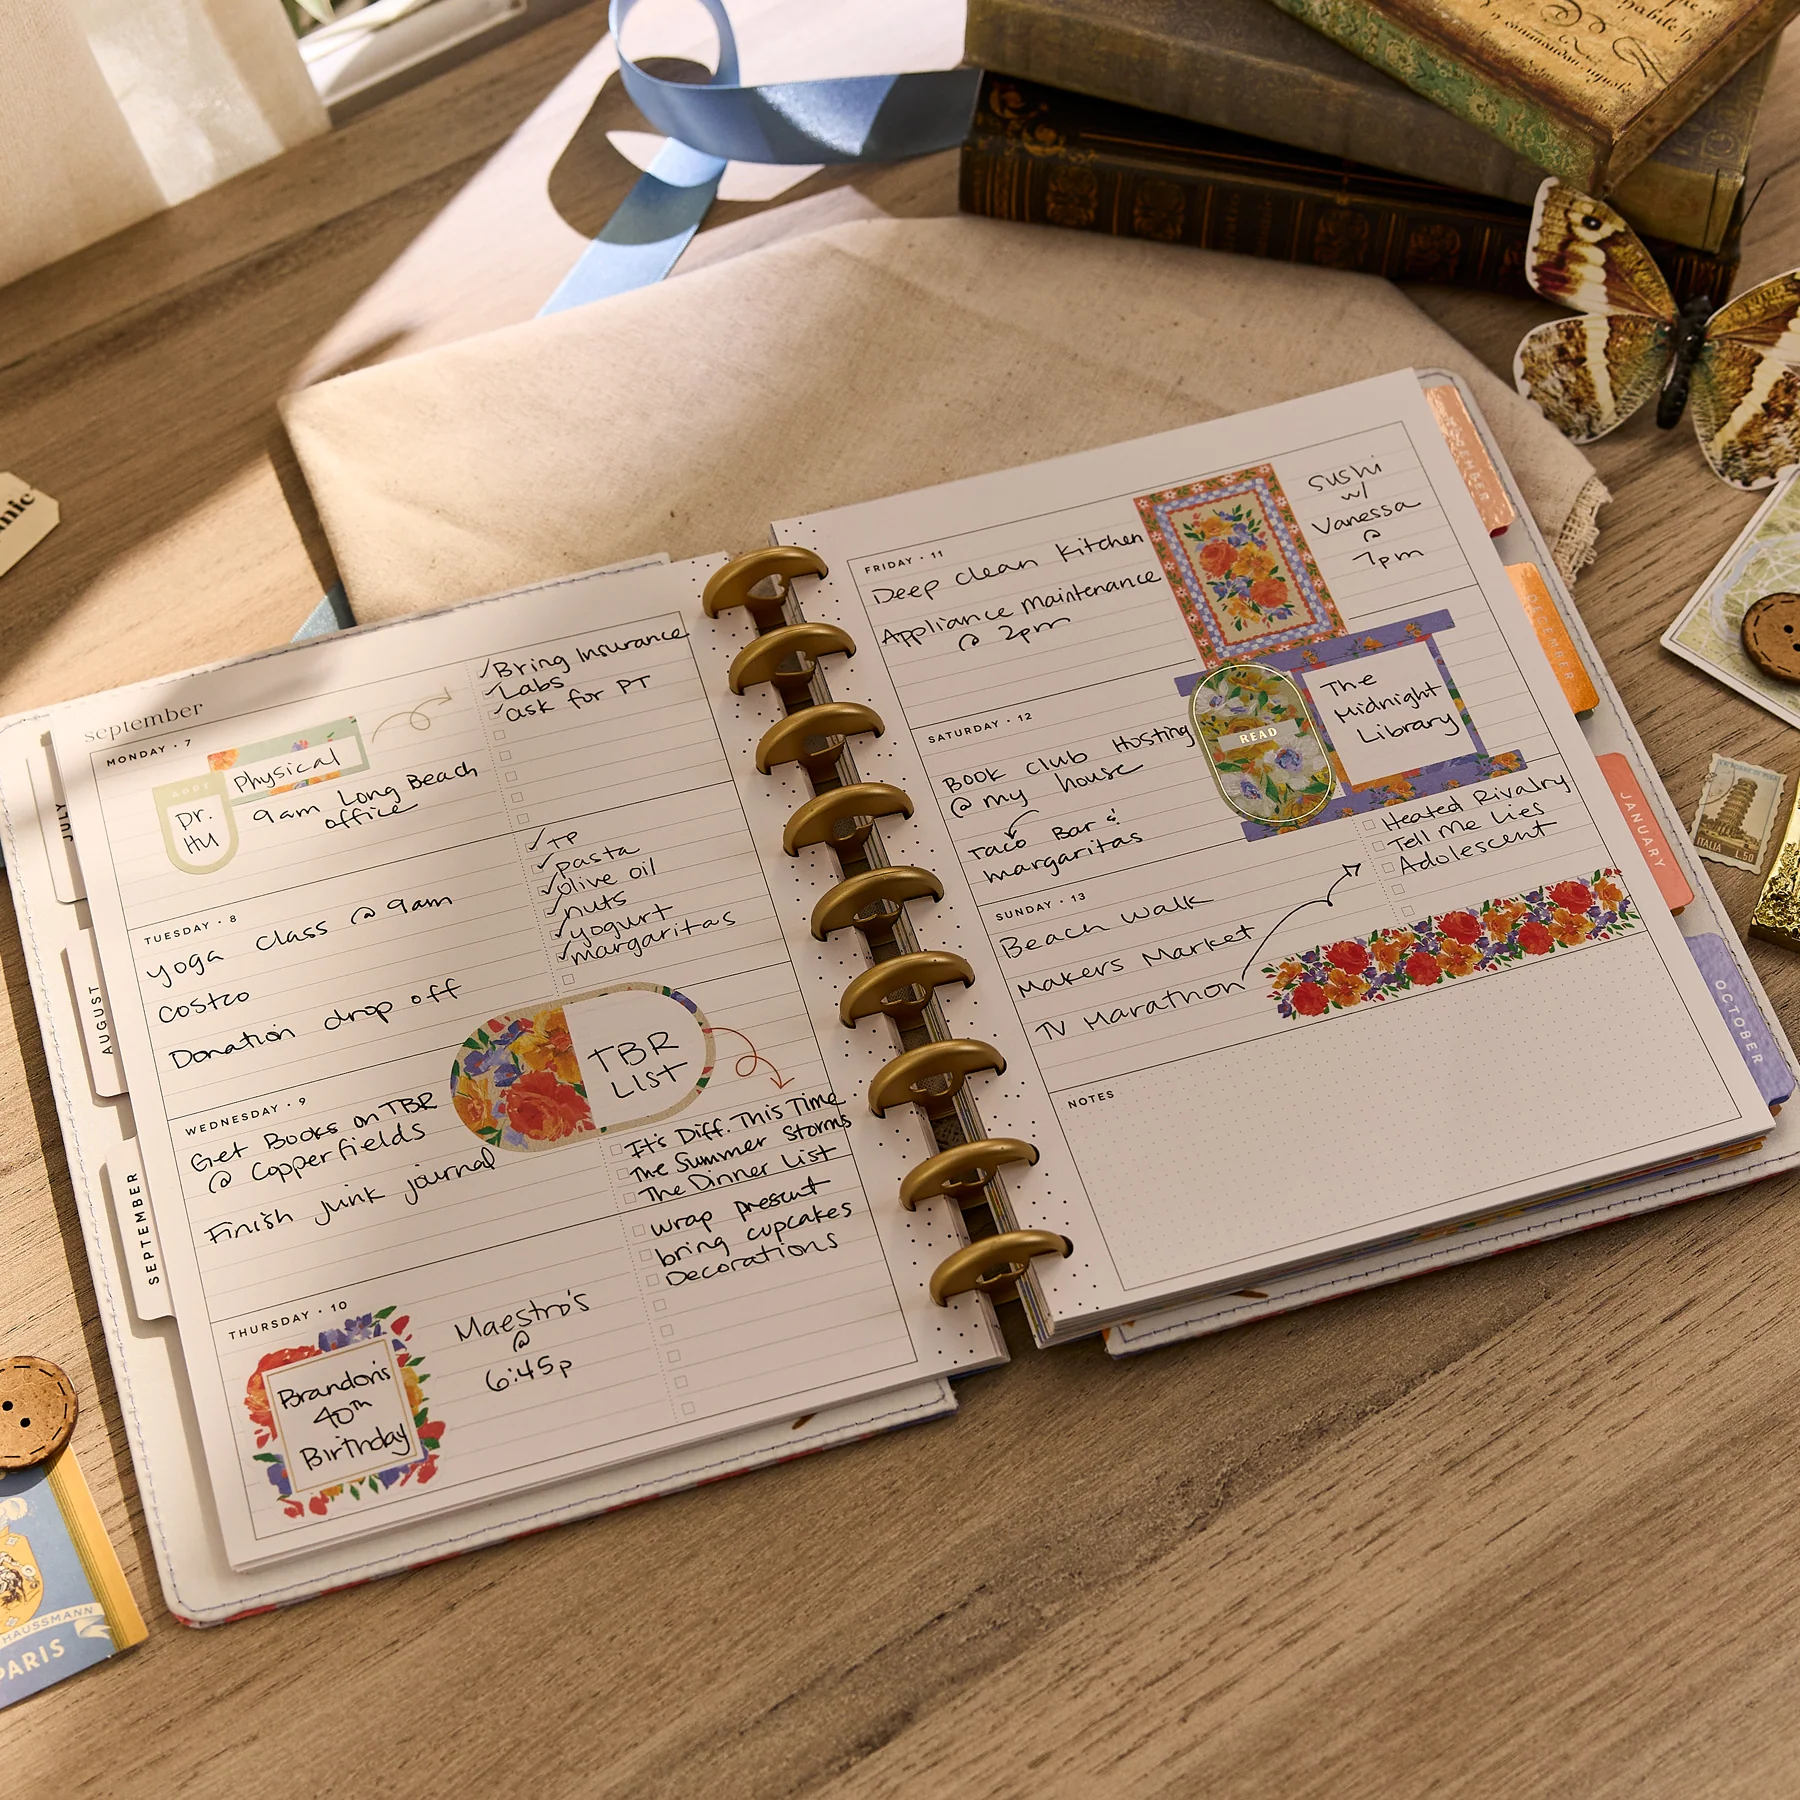 september
MONDAY · 7
Physical
BODY
Dr.
HU
9am Long Beach
office
✓Bring Insurance
✓Labs
✓ask for PT
TUESDAY · 8
yoga class @ 9am
costco
Donation drop off
✓TP
✓pasta
✓olive oil
✓nuts
✓yogurt
✓margaritas
WEDNESDAY · 9
Get Books on TBR
@ Copperfields
Finish junk journal
TBR
LIST
It's Diff. This Time
The Summer Storms
The Dinner List
THURSDAY · 10
Brandon's
40th
Birthday
Maestro's
@
6:45p
wrap present
bring cupcakes
Decorations
FRIDAY · 11
Deep clean kitchen
Appliance Maintenance
@ 2pm
Sushi
w/
Vanessa
@
7pm
SATURDAY · 12
Book club Hosting
@ my house
Taco Bar &
margaritas
READ
The
Midnight
Library
SUNDAY · 13
Beach walk
Makers Market
TV Marathon
Heated Rivalry
Tell Me Lies
Adolescent
NOTES
JULY
AUGUST
SEPTEMBER
DECEMBER
JANUARY
OCTOBER
ITALIA L.50
HAUSSMANN
PARIS